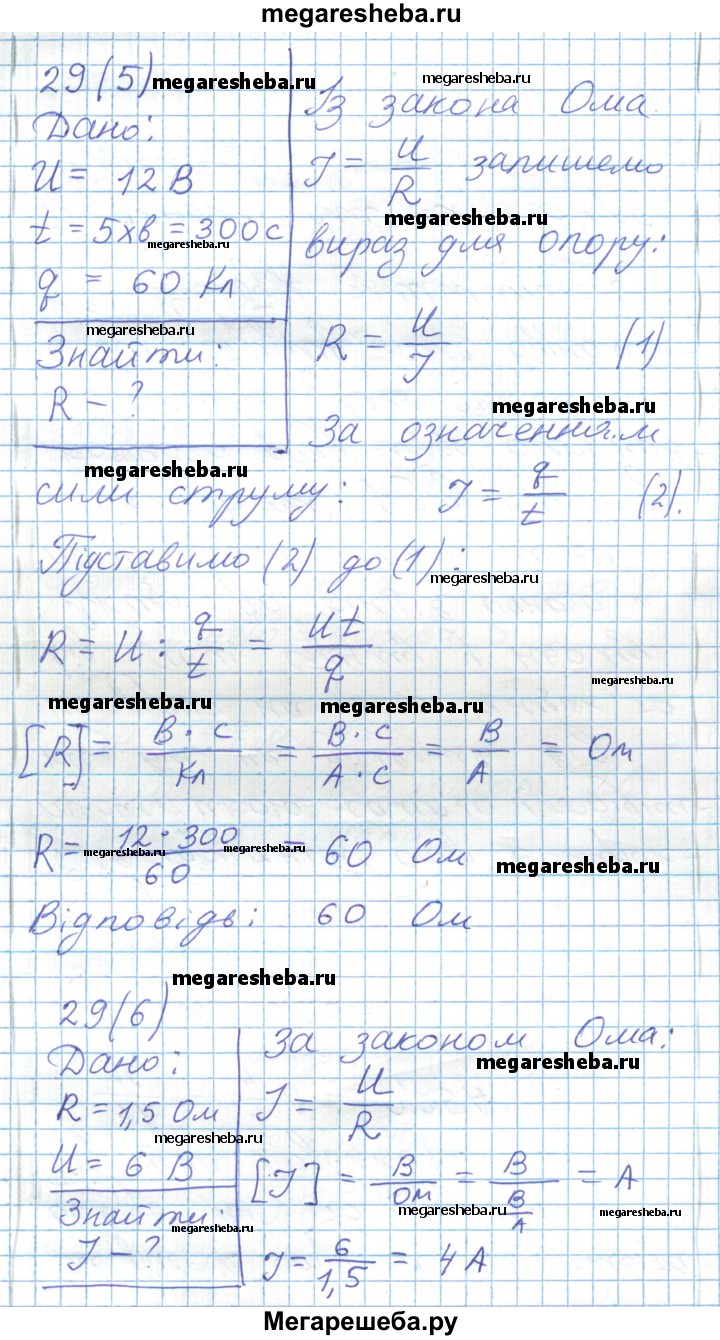 megaresheba.ru
29(5) megaresheba.ru
Дано:
U = 12 В
t = 5 хв = 300 с
megaresheba.ru
q = 60 Кл
megaresheba.ru
Знайти:
R - ?
megaresheba.ru
Із закона Ома
I = U/R запишемо
megaresheba.ru
вираз для опору:
R = U/I (1)
megaresheba.ru
За означенням
megaresheba.ru
сили струму: I = q/t (2).
Підставимо (2) до (1):
megaresheba.ru
R = U : q/t = Ut/q
megaresheba.ru
megaresheba.ru megaresheba.ru
[R] = В · с/Кл = В · с/А · с = В/А = Ом
R = 12 · 300/60 = 60 Ом
megaresheba.ru megaresheba.ru
megaresheba.ru
Відповідь: 60 Ом
megaresheba.ru
29(6)
Дано:
R = 1,5 Ом
megaresheba.ru
U = 6 В
Знайти:
megaresheba.ru
I - ?
За законом Ома:
megaresheba.ru
I = U/R
[I] = В/Ом = В/В/А = А
megaresheba.ru megaresheba.ru
I = 6/1,5 = 4 А
Мегарешеба.ру